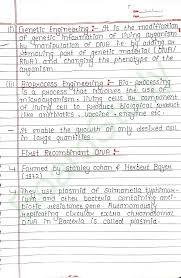 (i) Genetic Engineering :- It is the modification
of genetic information of living organism
by manipulation of DNA i.e by adding or
removing part of genetic material (DNA/
RNA) and changing the phenotype of the
organism.
(ii) Bioprocess Engineering :- Bio-processing
is a process that involves the use of
microorganism, living cells or component
of living cell to produce biological product
like antibiotics, vaccine, enzyme etc.
→ It enable the growth of only desired cell
in large quantities
First Recombinant DNA :-
→ Formed by Stanley Cohan & Herbert Boyer
(1972)
→ They use plasmid of Salmonella typhimur-
ium and other bacteria containing anti-
biotic resistance gene. Autonomously
Replicating circular extra chromosomal
DNA in Bacteria is called plasmid.